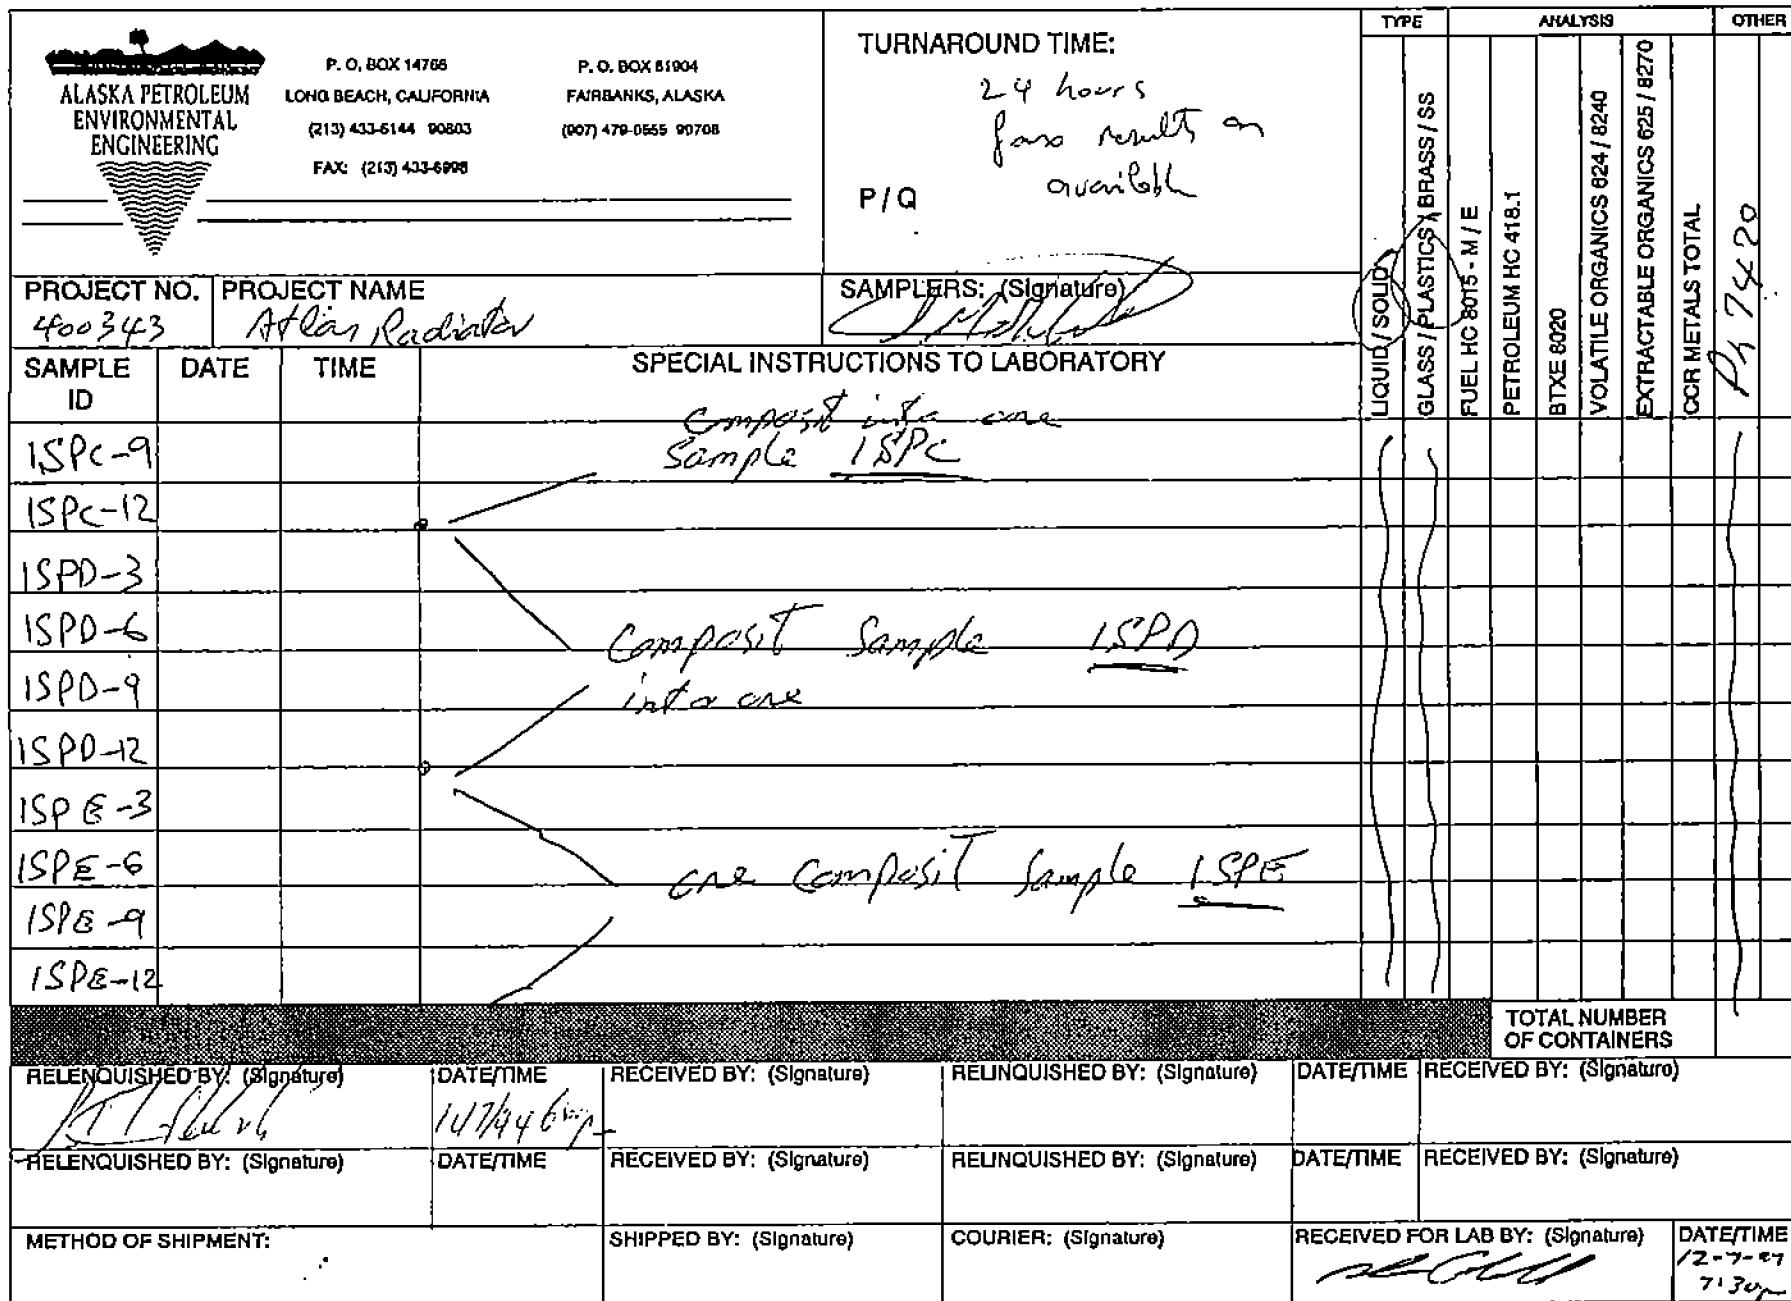 ALASKA PETROLEUM
ENVIRONMENTAL
ENGINEERING
P. O. BOX 14766
LONG BEACH, CALIFORNIA
(213) 433-6144 90803
FAX: (213) 433-6998
P. O. BOX 81904
FAIRBANKS, ALASKA
(907) 479-0555 99708
TURNAROUND TIME:
24 hours
results
P / Q
TYPE
ANALYSIS
OTHER
LIQUID / SOLID
GLASS / PLASTICS / BRASS / SS
FUEL HC 8015 - M / E
PETROLEUM HC 418.1
BTXE 8020
VOLATILE ORGANICS 624 / 8240
EXTRACTABLE ORGANICS 625 / 8270
CCR METALS TOTAL
7420
PROJECT NO.
400343
PROJECT NAME
Atlas Radiator
SAMPLERS: (Signature)
SAMPLE ID
DATE
TIME
SPECIAL INSTRUCTIONS TO LABORATORY
composit into one
Sample ISPC
ISPC-9
ISPC-12
ISPD-3
ISPD-6
Composit Sample ISPD
ISPD-9
into one
ISPD-12
ISPE-3
ISPE-6
one Composit Sample ISPE
ISPE-9
ISPE-12
TOTAL NUMBER
OF CONTAINERS
RELENQUISHED BY: (Signature)
DATE/TIME
RECEIVED BY: (Signature)
RELINQUISHED BY: (Signature)
DATE/TIME
RECEIVED BY: (Signature)
RELENQUISHED BY: (Signature)
DATE/TIME
RECEIVED BY: (Signature)
RELINQUISHED BY: (Signature)
DATE/TIME
RECEIVED BY: (Signature)
METHOD OF SHIPMENT:
SHIPPED BY: (Signature)
COURIER: (Signature)
RECEIVED FOR LAB BY: (Signature)
DATE/TIME